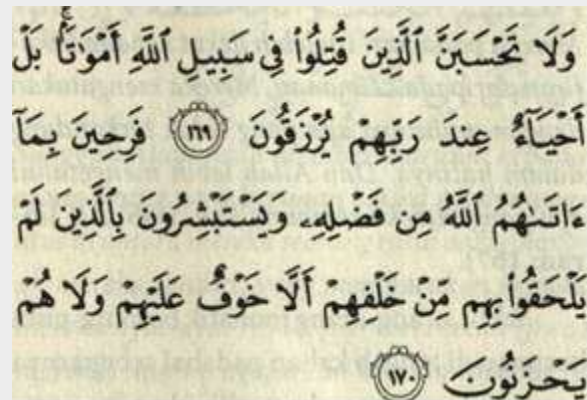 وَلَا تَحْسَبَنَّ ٱلَّذِينَ قُتِلُوا۟ فِى سَبِيلِ ٱللَّهِ أَمْوَٰتًۢا ۚ بَلْ
أَحْيَآءٌ عِندَ رَبِّهِمْ يُرْزَقُونَ ١٦٩ فَرِحِينَ بِمَآ
ءَاتَىٰهُمُ ٱللَّهُ مِن فَضْلِهِۦ وَيَسْتَبْشِرُونَ بِٱلَّذِينَ لَمْ
يَلْحَقُوا۟ بِهِم مِّنْ خَلْفِهِمْ أَلَّا خَوْفٌ عَلَيْهِمْ وَلَا هُمْ
يَحْزَنُونَ ١٧٠